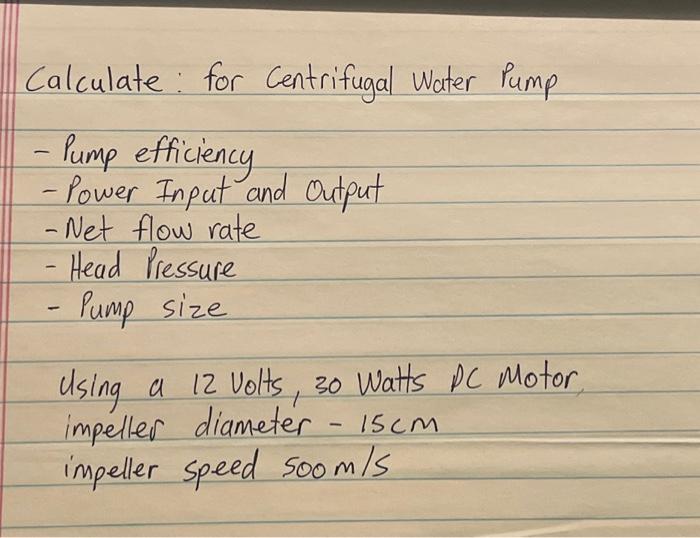 Calculate: for Centrifugal Water Pump
- Pump efficiency
- Power Input and Output
- Net flow rate
- Head Pressure
- Pump size
Using a 12 Volts, 30 Watts DC Motor,
impeller diameter - 15cm
impeller speed 500m/s